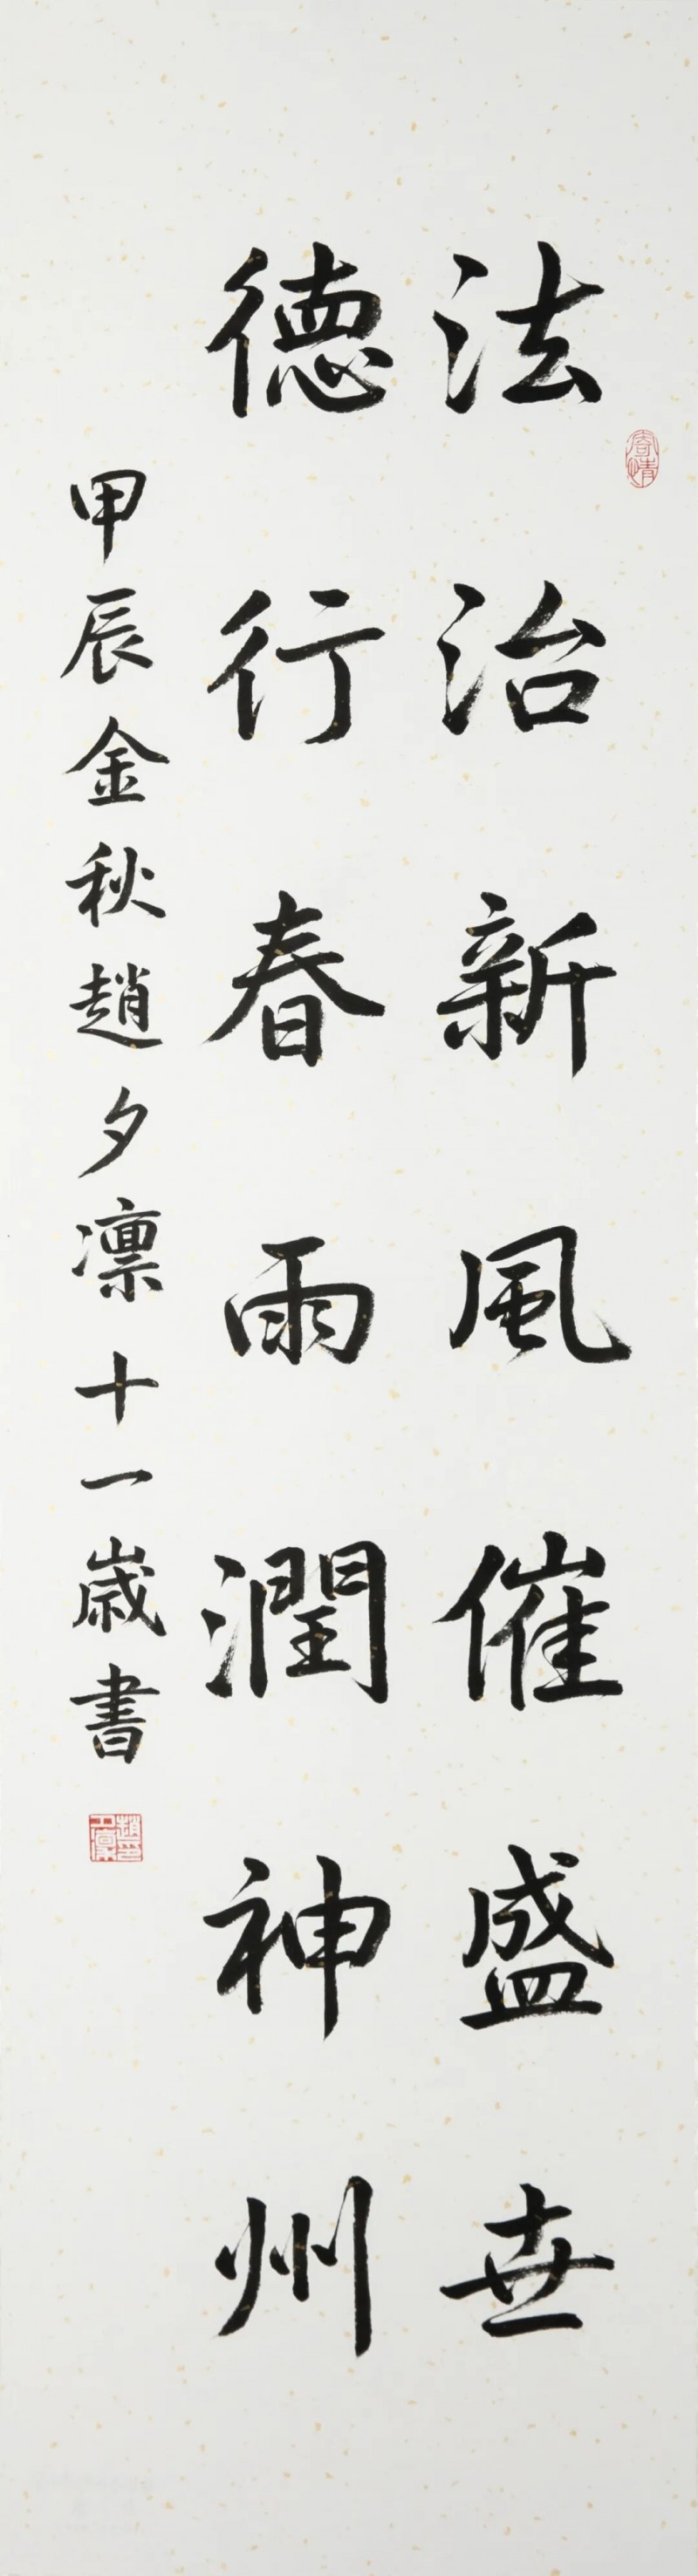 法治新風催盛世
德行春雨潤神州
甲辰金秋趙夕凛十一歲書
寄情